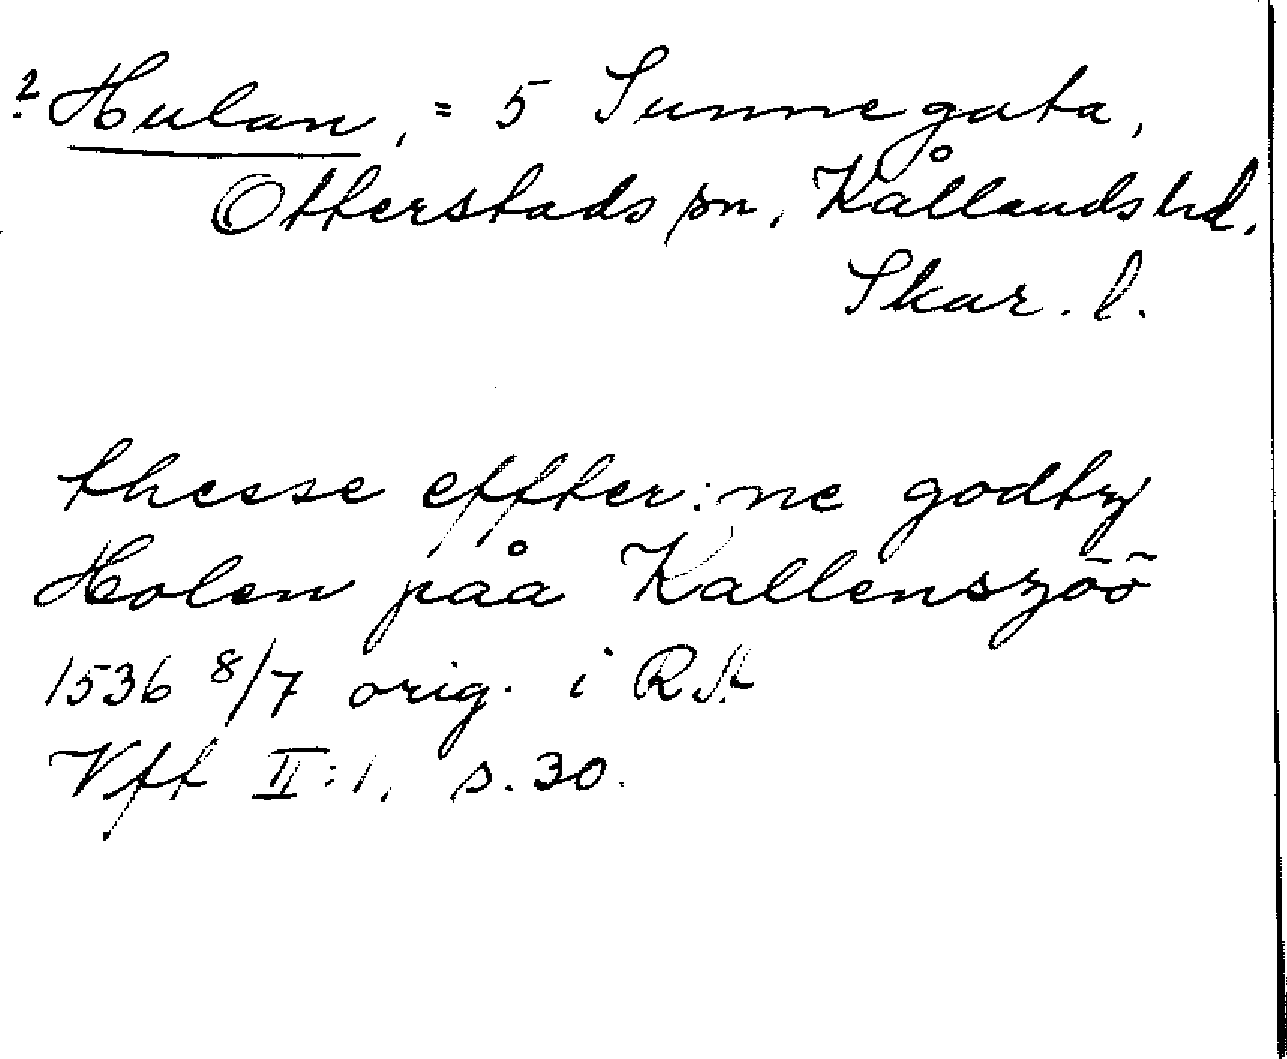 ? Hulan, = 5 Sunnegata,
Otterstads sn, Kållands hd.
Skar. l.
theese effter:ne godtz
Holen påå Kallenszöö
1536 8/7 orig. i RA
Vff II:1, s. 30.